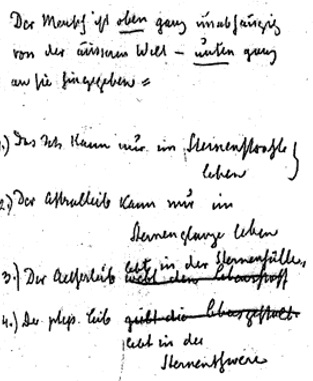 Der Mensch ist oben ganz unabhängig
von der äusseren Welt – unten ganz
an sie hingegeben =
1.) Das Ich kann nur im Sternenstrahle
leben
2.) Der Astralleib kann nur im
Sternenglanze leben
3.) Der Aetherleib lebt in der Sternenfülle,
webt den Lebensstoff
4.) Der phys. Leib gibt die Lebensgestalt
lebt in der
Sternenschwere